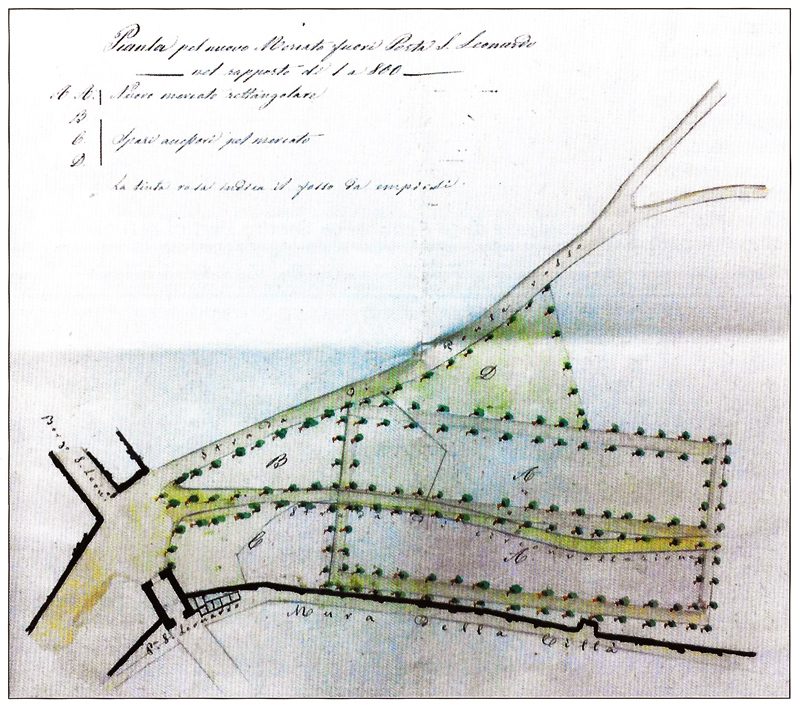 Pianta pel nuovo Mercato fuori Porta S. Leonardo
nel rapporto di 1 a 800
A A. Nuovo mercato rettangolare
B
C. Spazi accessori pel mercato
D.
La tinta rosa indica il fosso da empirsi
Strada di Ronzo rosso
D
Borgo S. Leon.
B
A
Strada di circonvallazione
A
C
Pta S. Leonardo
Mura Della Città